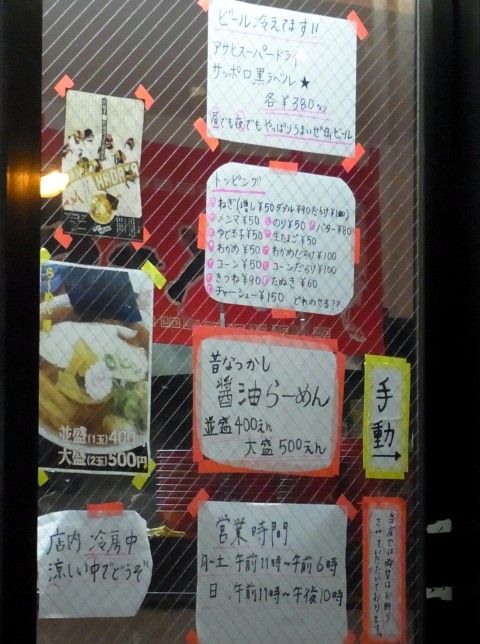 ビール冷えてます!!
アサヒスーパードライ
サッポロ黒ラベル ★
各¥380なり
昼でも夜でもやっぱりうまいぜ缶ビール
トッピング
ねぎ(増し¥50 ダブル¥90 だらけ¥180)
メンマ¥50 のり¥50 バター¥80
ゆで玉子¥50 生たまご¥50
わかめ¥50 わかめだらけ¥100
コーン¥50 コーンだらけ¥100
きつね¥90 たぬき¥60
チャーシュー¥150 どれのせる??
らーめん
並盛(1玉)400円
大盛(2玉)500円
昔なつかし
醤油らーめん
並盛400えん
大盛500えん
手動
→
店内 冷房中
涼しい中でどうぞ
営業時間
月~土 午前11時~午前6時
日 午前11時~午後10時
させていただいております。